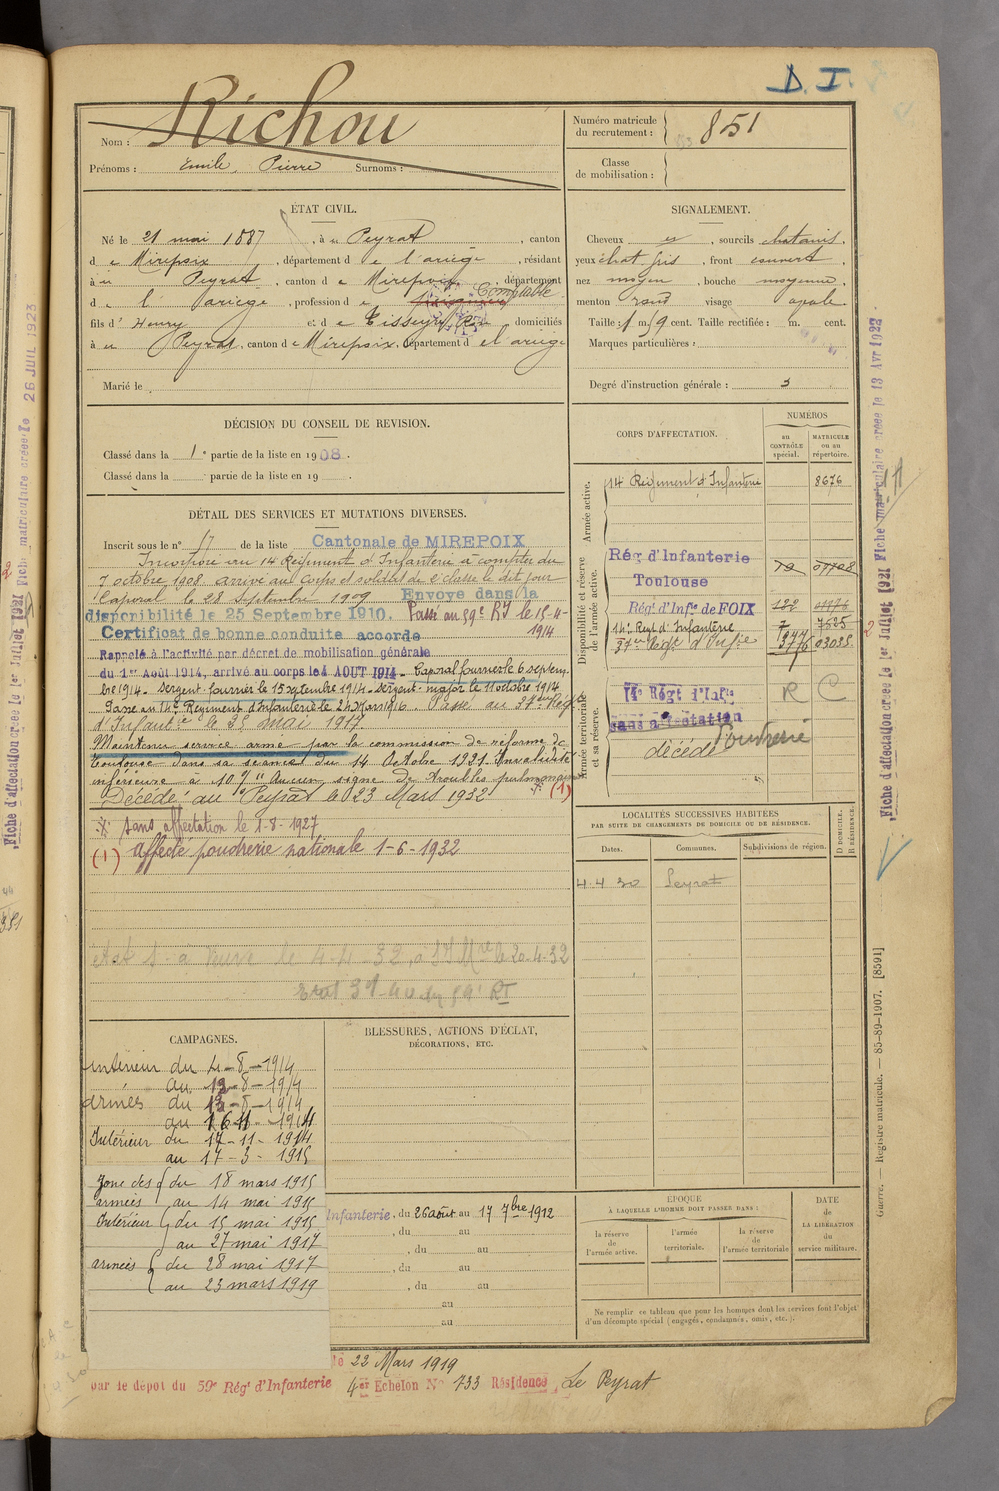 D. I.
Nom : Richou
Prénoms : Emile, Pierre Surnoms :
Numéro matricule du recrutement : 851
Classe de mobilisation :
ÉTAT CIVIL.
Né le 21 mai 1887, à u Peyrat, canton
d e Mirepoix, département d e l'ariège, résidant
à u Peyrat, canton d e Mirepoix, département
d e l'ariège, profession d e Comptable
fils d' Henry et d e Tisseyre domiciliés
à u Peyrat, canton d e Mirepoix, département d e l'ariège
Marié le
SIGNALEMENT.
Cheveux , sourcils chatains,
yeux chat. gris, front couvert,
nez moyen, bouche moyenne,
menton rond visage ovale
Taille : 1 m. 9 cent. Taille rectifiée : m. cent.
Marques particulières :
Degré d'instruction générale : 3
DÉCISION DU CONSEIL DE REVISION.
Classé dans la 1e partie de la liste en 1908.
Classé dans la partie de la liste en 19 .
DÉTAIL DES SERVICES ET MUTATIONS DIVERSES.
Inscrit sous le n° 17 de la liste Cantonale de MIREPOIX
Incorporé au 14 Régiment d'Infanterie à compter du
7 octobre 1908. arrivé au Corps et soldat de 2e classe le dit jour
Caporal le 28 septembre 1909 Envoyé dans la
disponibilité le 25 Septembre 1910. Passé au 59e RI le 15-4-
Certificat de bonne conduite accordé 1914
Rappelé à l'activité par décret de mobilisation générale
du 1er Août 1914, arrivé au corps le 4 AOUT 1914 - Caporal fourrier le 6 septem-
bre 1914 - Sergent-fourrier le 15 septembre 1914 - Sergent-major le 11 octobre 1914
Passé au 14e Régiment d'Infanterie le 24 Mars 1916. Passé au 37eme Régt
d'Infanterie le 28 mai 1917
Maintenu service armé par la commission de réforme de
Toulouse dans sa séance du 14 Octobre 1921. Invalidité
inférieure à 10 % Aucun signe de troubles pulmonaires
Décédé au Peyrat le 23 Mars 1932 (1)
sans affectation le 1-8-1927
(1) affecté poudrerie nationale 1-6-1932
CORPS D'AFFECTATION.
NUMÉROS
au CONTRÔLE spécial.
MATRICULE ou au répertoire.
Armée active.
14 Régiment d'Infanterie 8676
Disponibilité et réserve de l'armée active.
Rég d'Infanterie
Toulouse
Régt d'Infie de FOIX
14e Regt d'Infanterie 7 7525
37eme Regt d'Infie 03025
Armée territoriale et sa réserve.
14e Régt d'Infie R C
sans affectation
décédé Poudrerie
LOCALITÉS SUCCESSIVES HABITÉES
PAR SUITE DE CHANGEMENTS DE DOMICILE OU DE RÉSIDENCE.
Dates. Communes. Subdivisions de région. D DOMICILE. R RÉSIDENCE.
4 4 30 Peyrat
CAMPAGNES.
Intérieur du 4-8-1914
au 12-8-1914
armées du 13-8-1914
au 16 11-1914
Intérieur du 17-11-1914
au 17-3-1915
Zone des armées du 18 mars 1915
au 14 mai 1915
Intérieur du 15 mai 1915
au 27 mai 1917
armées du 28 mai 1917
au 23 mars 1919
BLESSURES, ACTIONS D'ÉCLAT,
DÉCORATIONS, ETC.
Infanterie, du 26 août au 17 7bre 1912
, du au
, du au
, du au
, du au
au
au
ÉPOQUE
À LAQUELLE L'HOMME DOIT PASSER DANS :
la réserve de l'armée active.
l'armée territoriale.
la réserve de l'armée territoriale
DATE de LA LIBÉRATION du service militaire.
Ne remplir ce tableau que pour les hommes dont les services font l'objet
d'un décompte spécial (engagés, condamnés, omis, etc.).
le 22 Mars 1919
par le dépôt du 59e Régt d'Infanterie 4er Echelon N° 733 Résidence, Le Peyrat
Fiche matriculaire créée le 26 JUIL. 1923
Fiche d'affectation créée le 1er Juillet 1921
Fiche matriculaire créée le 13 Avr 1922
Fiche d'affectation créée le 1er Juillet 1921
Guerre. — Registre matricule. — 85-89-1907. [8591]